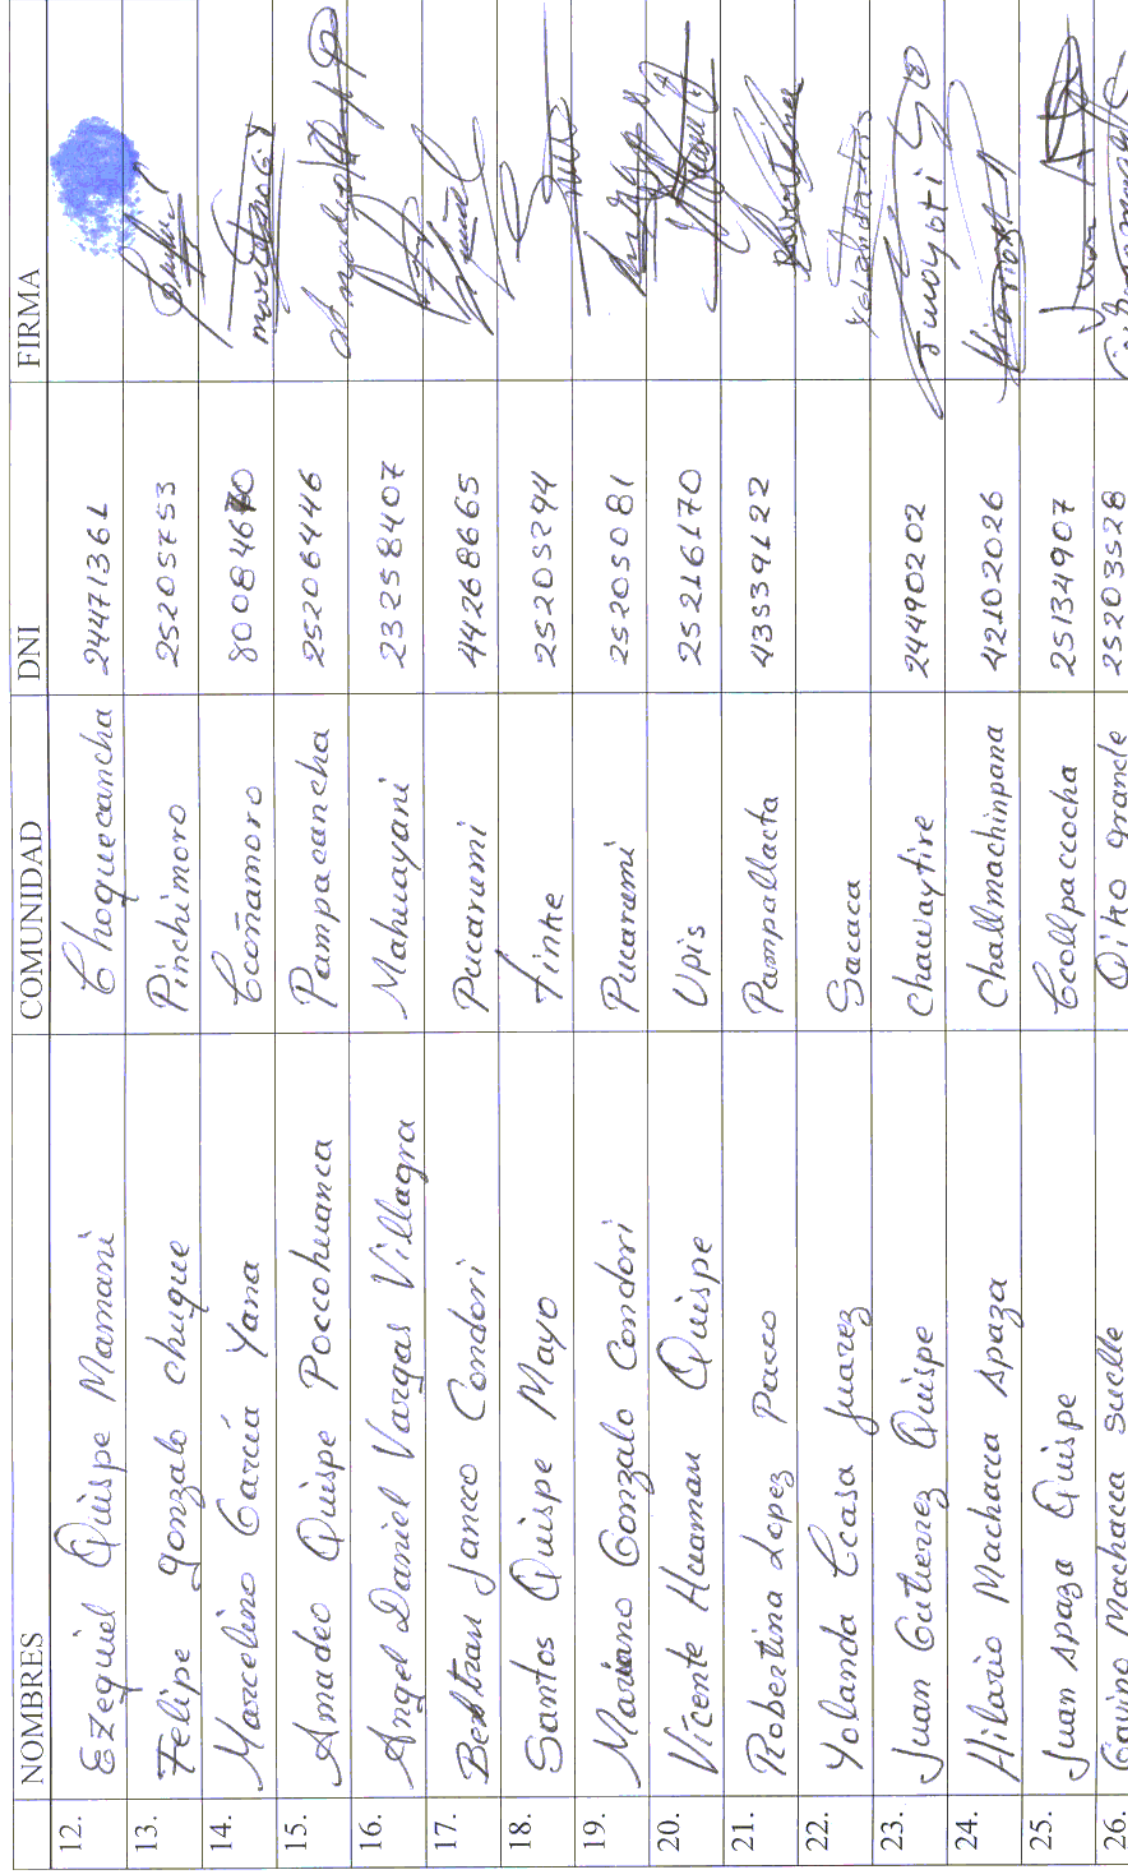 NOMBRES COMUNIDAD DNI FIRMA
12. Ezequiel Quispe Mamani Choquecancha 24471361
13. Felipe Gonzalo Chuque Pinchimoro 25205753
14. Marcelino García Yana Ccoñamoro 80084670
15. Amadeo Quispe Poccohuanca Pampacancha 25206446
16. Angel Daniel Vargas Villagra Mahuayani 23258407
17. Beltran Jancco Condori Pucarumi 44268665
18. Santos Quispe Mayo Tinke 25205294
19. Mariano Gonzalo Condori Pucarumi 25205081
20. Vicente Huaman Quispe Upis 25216170
21. Robertina Lopez Pacco Pampallacta 43539122
22. Yolanda Ccasa Juarez Sacaca
23. Juan Gutierrez Quispe Chawaytire 24490202
24. Hilario Machacca Apaza Challmachinpana 42102026
25. Juan Apaza Quispe Ccollpaccocha 25134907 Juan
26. Gavino Machacca Suclle Qiko grande 25203528